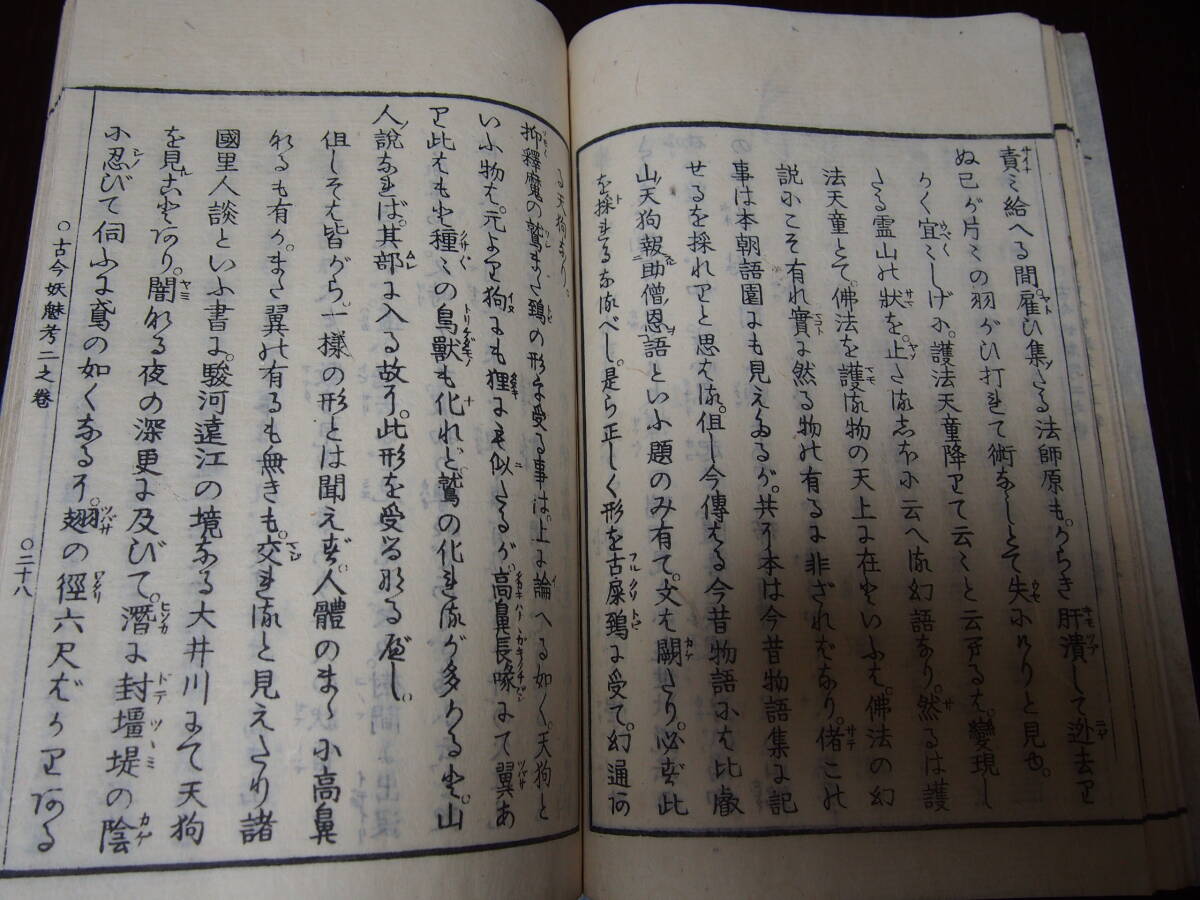 責ミ給へる間。雇ひ集たる法師原も。からき肝潰して迯去り
ぬ已が片ミの羽がひ打れて術なしとて失にけりと見也。
かく宜ミしげに。護法天童降りて云ミと云するは。變現し
たる霊山の状を。止たるしなに云へる幻語なり。然るは護
法天童とて。佛法を護る物の天上に在といふは。佛法の幻
説にこそ有れ實に然る物の有るに非ざればなり。偖この
事は本朝語園にも見えたるが。共に本は今昔物語集に記
せるを採れりと思はる。但し今傳はる今昔物語には比叡
山天狗報助僧恩語といふ題のみ有て。文は闕たり。必ず此
を採れるなるべし。是ら正しく形を古屎鵄に受て。幻通あ
る天狗なり。
抑釋魔の鷲また鵄の形を受る事は。上に論へる如く。天狗と
いふ物は。元より狗にも狸にも似たるが。高鼻長喙にて翼あ
り此はも と種ミの鳥獣も化れど。鷲の化れるが多かると。山
人説なれば。其部に入る故に。此形を受るなるべし。
但しそは皆がら。一樣の形とは聞えず。人體のまゝに高鼻
なるも有が。また翼の有るも無きも。交れると見えたり諸
國里人談といふ書に。駿河遠江の境なる大井川にて天狗
を見ることあり。闇なる夜の深更に及びて。潛に封壃堤の陰
に忍びて伺ふに鳶の如くなるに。翅の徑六尺ばかりある
○古今妖魅考二之巻
○二十八